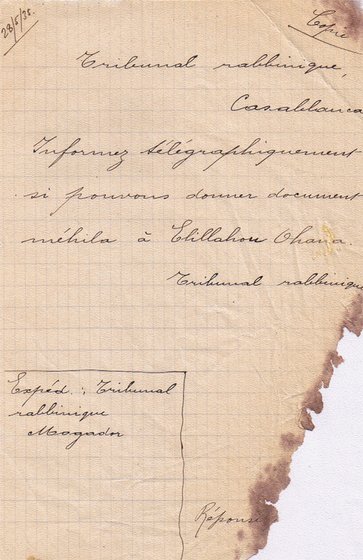 28/5/35.
Copie
Tribunal rabbinique,
Casablanca
Informez télégraphiquement
si pouvons donner document
méhila à Elillahou Ohana.
Tribunal rabbinique
Expéd. : Tribunal
rabbinique
Mogador
Réponse